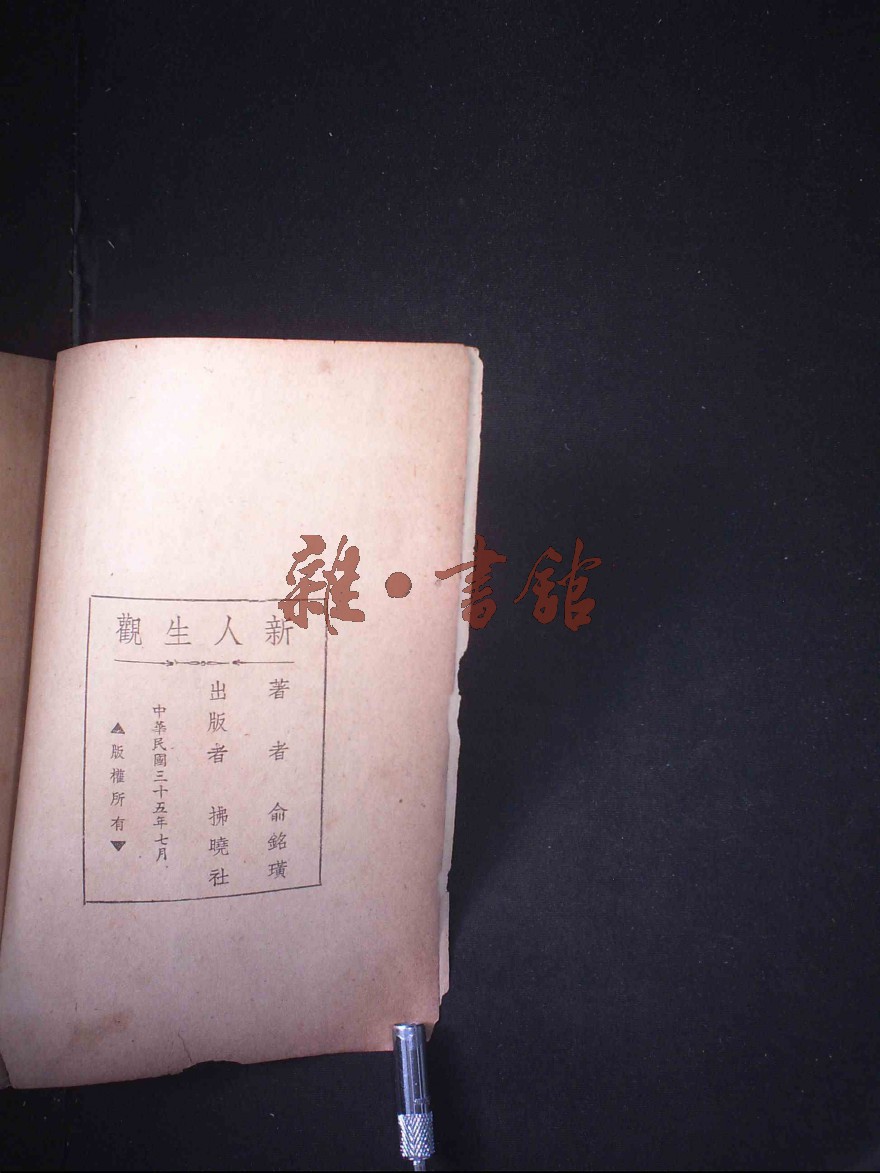 新人生觀
著者 俞銘璜
出版者 拂曉社
中華民國三十五年七月
▲版權所有▼
雜·書館